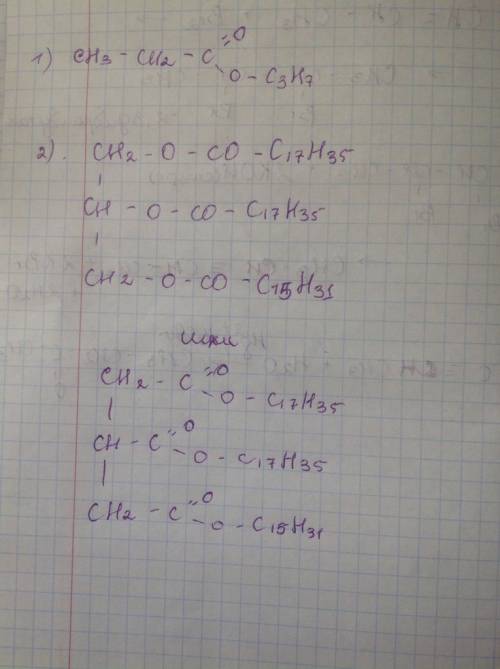 1) CH3 - CH2 - C =O
- O - C3H7
2). CH2 - O - CO - C17H35
CH - O - CO - C17H35
CH2 - O - CO - C15H31
или
CH2 - C =O
- O - C17H35
CH - C =O
- O - C17H35
CH2 - C =O
- O - C15H31